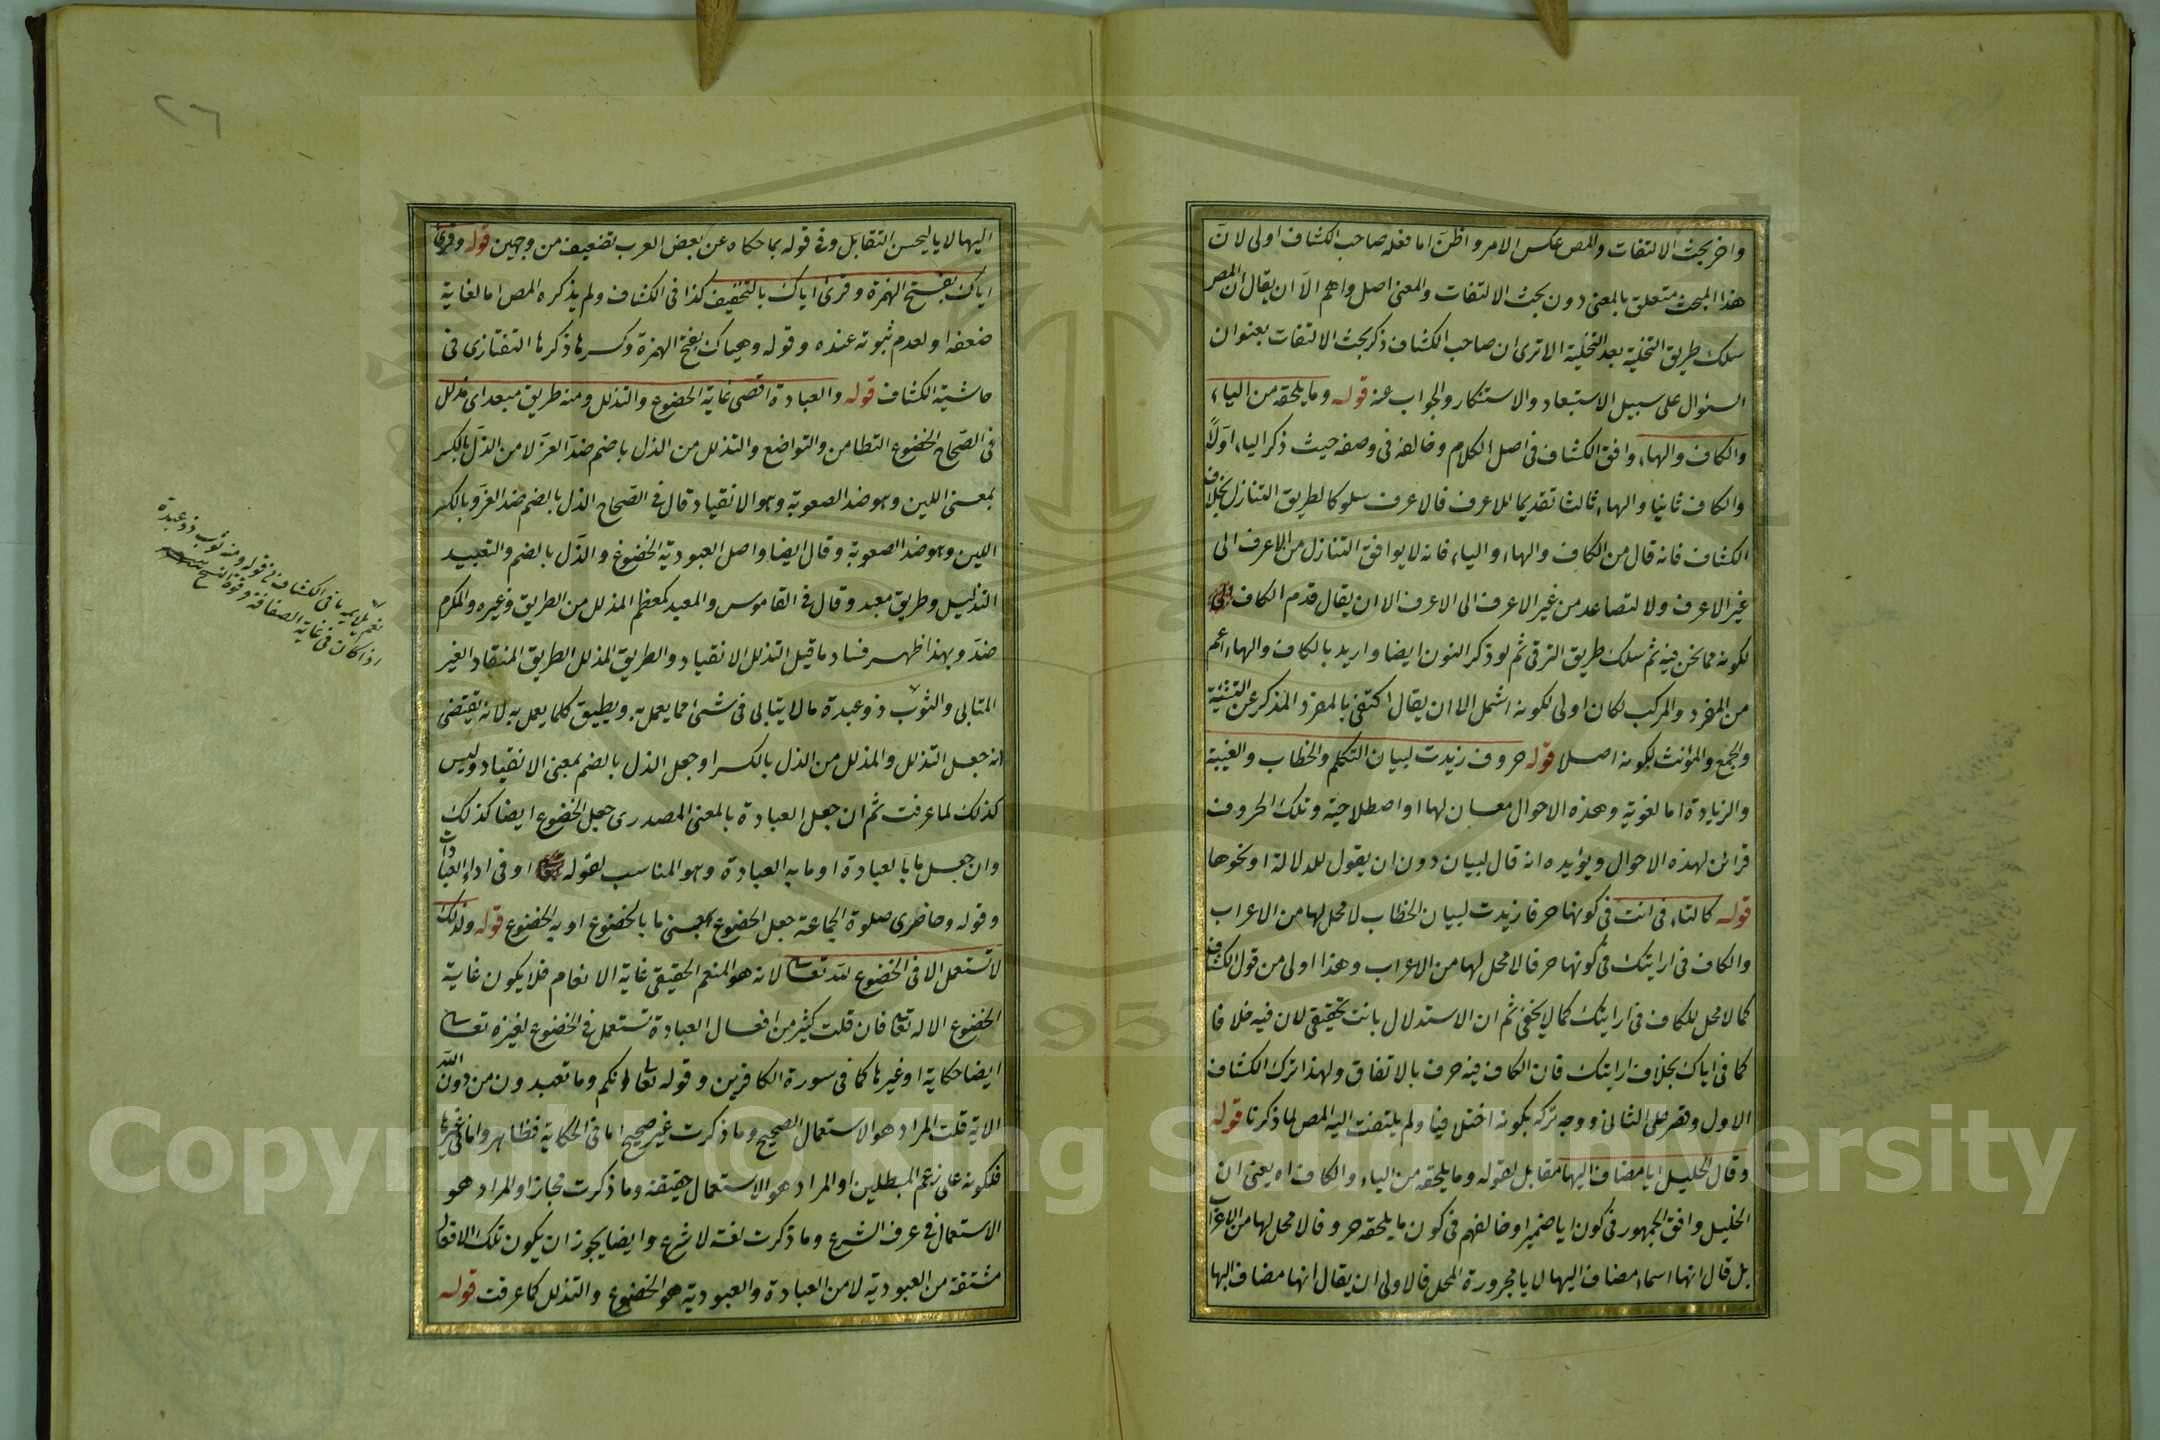 واخر بحث الالتفات والمص عكس الامر واظن اما فعله صاحب الكشاف اولى لان
هذا المبحث متعلق بالمعنى دون بحث الالتفات والمعنى اصل واهم الا ان يقال ان المص
سلك طريق التحلية بعد التخلية الا ترى ان صاحب الكشاف ذكر بحث الالتفات بعنوان
السئوال على سبيل الاستبعاد والاستنكار والجواب عنه قوله وما يلحقه من الياء
والكاف والهاء وافق الكشاف فى اصل الكلام وخالفه فى وصفه حيث ذكر الياء اولاً
والكاف ثانيا والهاء ثالثا تقديما للاعرف فالاعرف سلوكا لطريق التنازل بخلاف
الكشاف فانه قال من الكاف والهاء والياء فانه لا يوافق التنازل من الاعرف الى
غير الاعرف ولا لتصاعد من غير الاعرف الى الاعرف الا ان يقال قدم الكاف
لكونه مما نحن فيه ثم سلك طريق الترقى ثم لو ذكر النون ايضا واريد بالكاف والهاء اعم
من المفرد والمركب لكان اولى لكونه اشمل الا ان يقال اكتفى بالمفرد المذكر عن التثنية
والجمع والمؤنث لكونه اصلا قوله حروف زيدت لبيان التكلم والخطاب والغيبة
والزيادة اما لغوية وهذه الاحوال معان لها او اصطلاحية وتلك الحروف
قرائن لهذه الاحوال ويؤيده انه قال لبيان دون ان يقول للدلالة او نحوها
قوله كالتاء فى انت فى كونها حرفا زيدت لبيان الخطاب لا محل لها من الاعراب
والكاف فى ارايتك فى كونها حرفا لا محل لها من الاعراب وهذا اولى من قول الكشاف
كما لا محل للكاف فى ارايتك كما لا يخفى ثم ان الاستدلال بانت تحقيقى لان فيه خلافا
كما فى اياك بخلاف ارايتك فان الكاف فيه حرف بالاتفاق ولهذا ترك الكشاف
الاول وقصر على الثانى ووجه تركه بكونه اختلافيا ولم يلتفت اليه المص لما ذكرنا قوله
وقال الخليل ايا مضاف اليها مقابل لقوله وما يلحقه من الياء والكاف اه يعنى ان
الخليل وافق الجمهور فى كون ايا ضميرا وخالفهم فى كون ما يلحقه حروفا لا محل لها من الاعراب
بل قال انها اسماء مضاف اليها لايا مجرورة المحل فالاولى ان يقال انها مضاف اليها
٢٦
اليها لايا ليحسن التقابل وفى قوله بما حكاه عن بعض العرب تضعيف من وجهين قوله وقرئ
اياك بفتح الهمزة وقرئ اياك بالتخفيف كذا فى الكشاف ولم يذكره المص اما لغاية
ضعفه او لعدم ثبوته عنده وقوله وهياك بفتح الهمزة وكسرها ذكرها التفتازى فى
حاشية الكشاف قوله والعبادة اقصى غاية الخضوع والتذلل ومنه طريق معبد اى مذلل
فى الصحاح الخضوع التطامن والتواضع والتذلل من الذل باضم ضد العز لا من الذل بالكسر
بمعنى اللين وهو ضد الصعوبة وهو الانقياد قال فى الصحاح الذل بالضم ضد العز وبالكسر
اللين وهو ضد الصعوبة وقال ايضا واصل العبودية الخضوع والذل بالضم والتعبيد
التذليل وطريق معبد وقال فى القاموس والمعبد كمعظم المذلل من الطريق وغيره والمكرم
ضد وبهذا ظهر فساد ما قيل التذلل الانقياد والطريق المذلل الطريق المنقاد الغير
المتابى والثوب ذو عبدة مالا يتابى فى شئ مما يعمل به ويطيق كلما يعمل به لانه يقتضى
انه جعل التذلل والمذلل من الذل بالكسر او جعل الذل بالضم بمعنى الانقياد وليس
كذلك لما عرفت ثم ان جعل العبادة بالمعنى المصدرى جعل الخضوع ايضا كذلك
وان جعل ما بالعبادة او ما به العبادة وهو المناسب لقوله او فى اداء العبادات
وقوله وحاضرى صلوة الجماعة جعل الخضوع بمعنى ما بالخضوع او به الخضوع قوله ولذلك
لا تستعمل الا فى الخضوع لله تعالى لانه هو المنعم الحقيقى غاية الانعام فلا يكون غاية
الخضوع الا له تعالى فان قلت كثير من افعال العبادة تستعمل فى الخضوع لغيره تعالى
ايضا حكاية او غيرها كما فى سورة الكافرين وقوله تعالى انكم وما تعبدون من دون الله
الاية قلت المراد هو الاستعمال الصحيح وما ذكرت غير صحيح اما فى الحكاية فظاهر واما فى غيرها
فلكونه على زعم المبطلين او المراد هو الاستعمال حقيقة وما ذكرت مجاز او المراد هو
الاستعمال فى عرف الشرع وما ذكرت لغة لا شرع وايضا يجوز ان يكون تلك الافعال
مشتقة من العبودية لا من العبادة والعبودية هو الخضوع والتذلل كما عرفت قوله
نعم يلايمه ما فى الكشاف فى قوله ومنه ثوب ذو عبدة
اذا كان فى غاية الصفاقة وقوة النسج
Copyright © King Saud University
1957